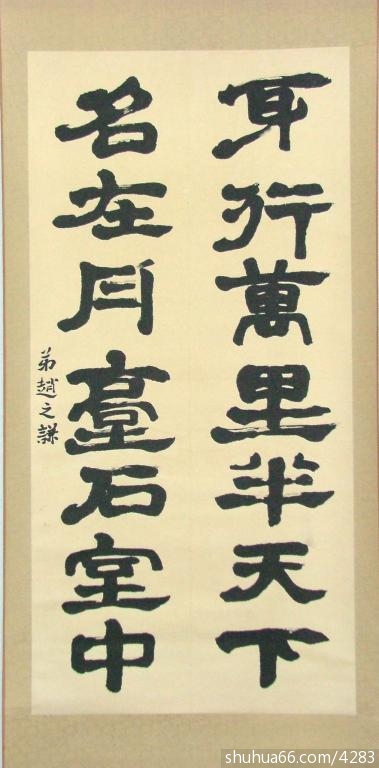 身行萬里半天下
名在丹臺石室中
弟趙之謙
shuhua66.com/4283